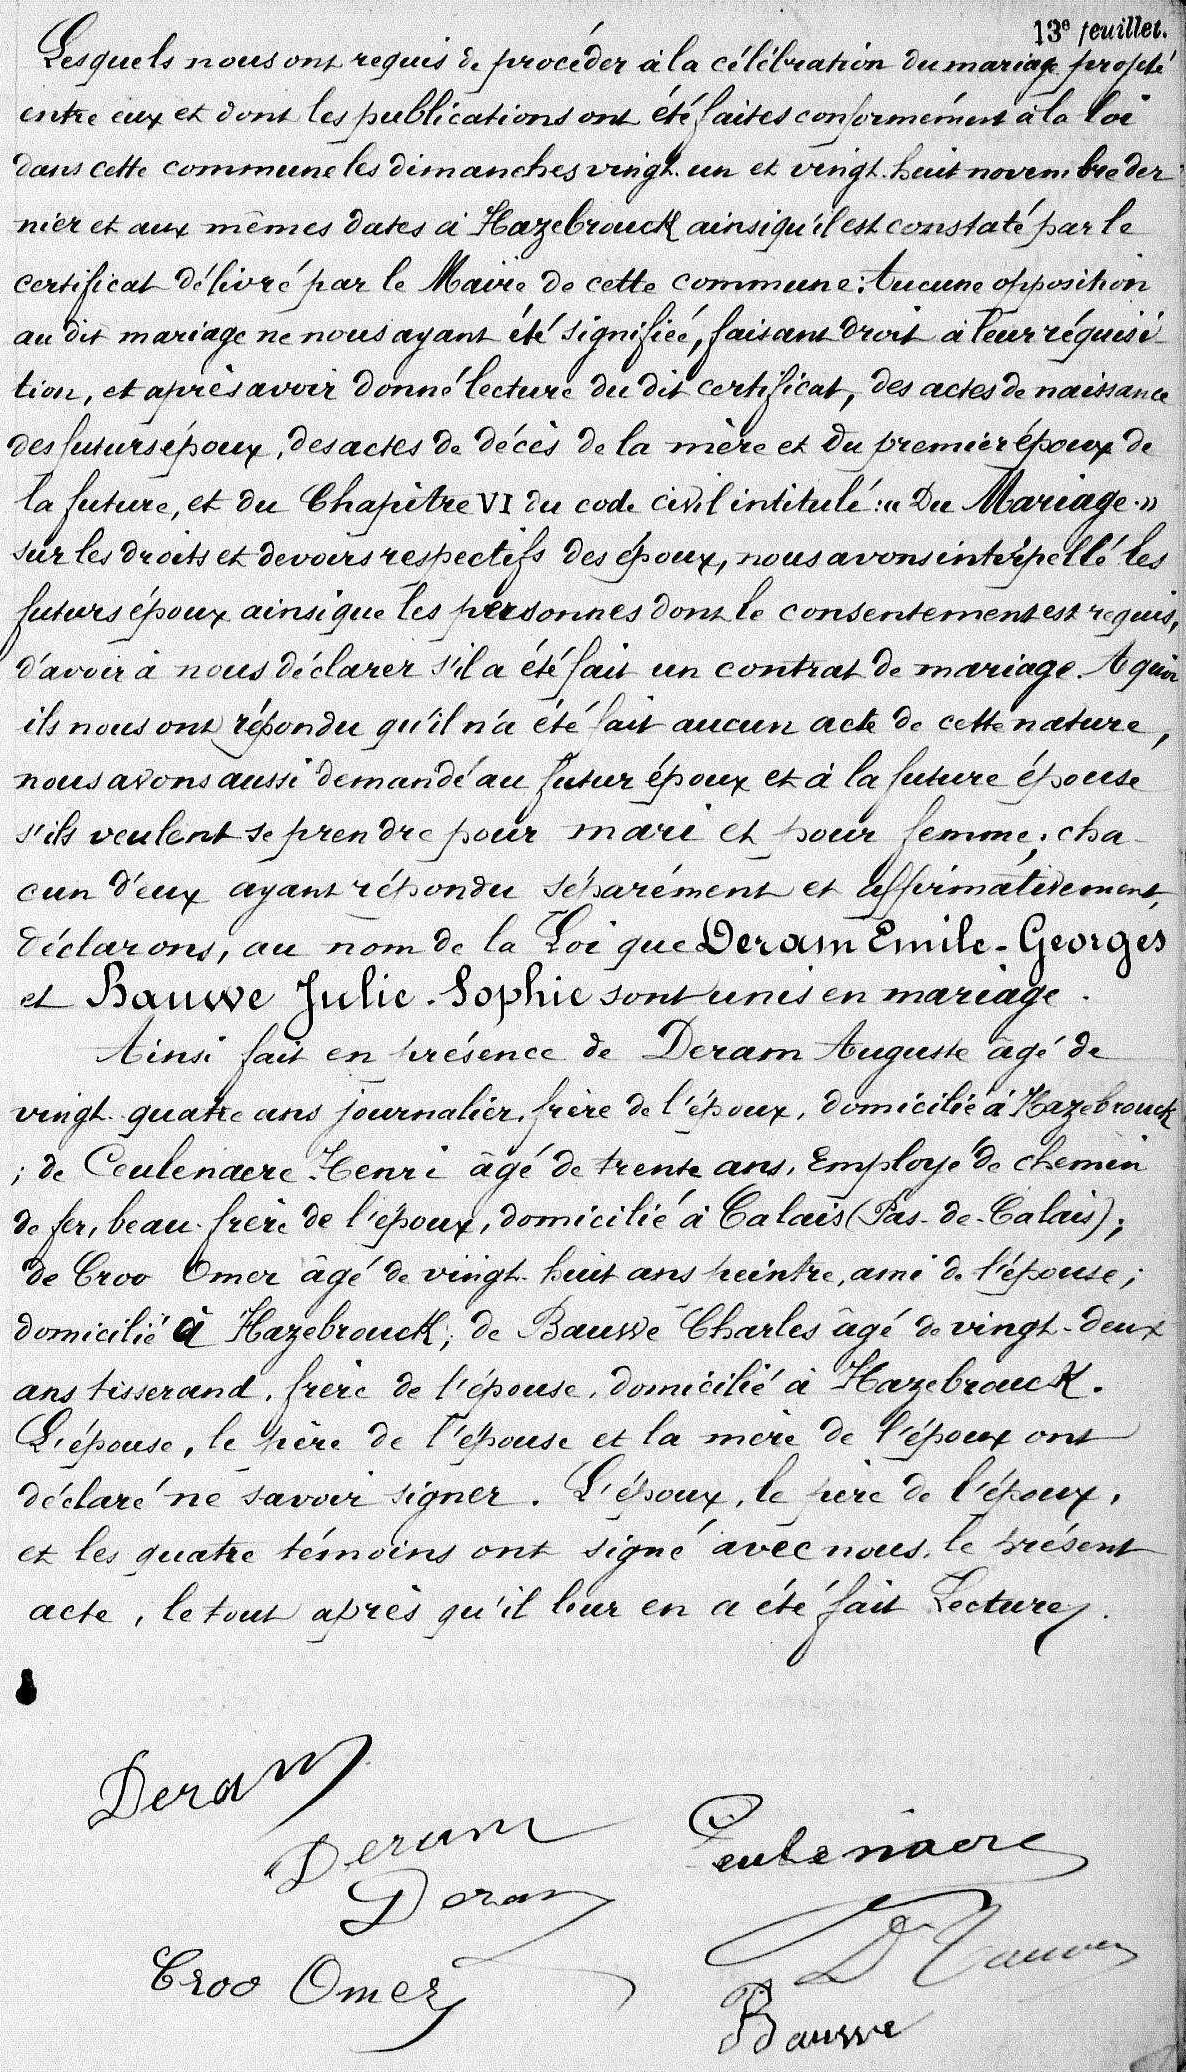 13e feuillet.
Lesquels nous ont requis de procéder à la célébration du mariage projeté
entre eux et dont les publications ont été faites conformément à la loi
dans cette commune les dimanches vingt-un et vingt-huit novembre der
nier et aux mêmes dates à Hazebrouck ainsi qu'il est constaté par le
certificat délivré par le Maire de cette commune. Aucune opposition
au dit mariage ne nous ayant été signifiée, faisant droit à leur réquisi-
tion, et après avoir donné lecture du dit certificat, des actes de naissance
des futurs époux, des actes de décès de la mère et du premier époux de
la future, et du Chapitre VI du code civil intitulé: « Du Mariage. »
sur les droits et devoirs respectifs des époux, nous avons interpellé les
futurs époux ainsi que les personnes dont le consentement est requis,
d'avoir à nous déclarer s'il a été fait un contrat de mariage. A quoi
ils nous ont répondu qu'il n'a été fait aucun acte de cette nature,
nous avons aussi demandé au futur époux et à la future épouse
s'ils veulent se prendre pour mari et pour femme; cha-
cun d'eux ayant répondu séparément et affirmativement,
déclarons, au nom de la Loi que Deram Emile-Georges
et Bauwe Julie-Sophie sont unis en mariage.
Ainsi fait en présence de Deram Auguste âgé de
vingt-quatre ans journalier, frère de l'époux, domicilié à Hazebrouck
; de Ceulenaere Henri âgé de trente ans, Employé de chemin
de fer, beau-frère de l'époux, domicilié à Calais (Pas-de-Calais);
de Croo Omer âgé de vingt-huit ans peintre, ami de l'épouse;
domicilié à Hazebrouck; de Bauwe Charles âgé de vingt-deux
ans tisserand, frère de l'épouse, domicilié à Hazebrouck.
L'épouse, le père de l'épouse et la mère de l'époux ont
déclaré ne savoir signer. L'époux, le père de l'époux,
et les quatre témoins ont signé avec nous, le présent
acte, le tout après qu'il leur en a été fait Lecture.
Deram
Deram
Ceulenaere
Deram
Croo Omer
Bauwe